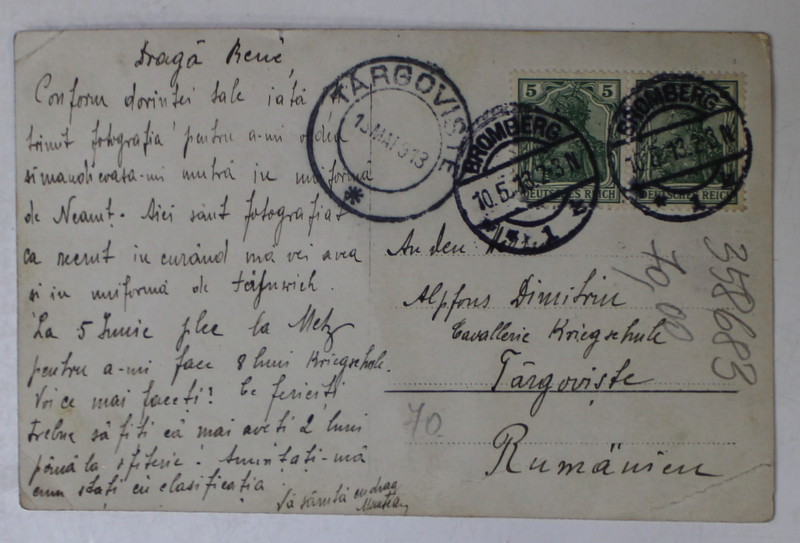 Dragă René,
Conform dorinței tale iată
trimit fotografia pentru a-mi vedea
simandicoasa-mi mutră in uniformă
de Neamț. Aici sânt fotografiat
ca recrut in curând mă vei avea
și in uniformă de Fähnrich.
La 5 Iunie plec la Metz
pentru a-mi face 8 luni Kriegschule.
Voi ce mai faceți? Ce fericiți
trebue să fiți că mai aveți 2 luni
până la ofițerie! Amintați-mă
cum stați cu clasificația
Vă sărută cu drag
TÂRGOVISTE
13 MAI 913
BROMBERG
10.5.13.7-8N
1
BROMBERG
10.5.13.7-8N
1
5 5
DEUTSCHES REICH
DEUTSCHES REICH
An den
Alpfons Dimitriu
Cavallerie Kriegschule
Târgoviște
Rumänien
70
70,00
358683